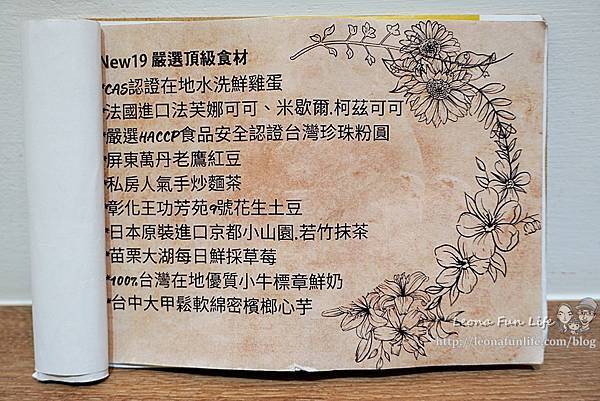 New19 嚴選頂級食材
*CAS認證在地水洗鮮雞蛋
*法國進口法芙娜可可、米歇爾.柯茲可可
*嚴選HACCP食品安全認證台灣珍珠粉圓
*屏東萬丹老鷹紅豆
*私房人氣手炒麵茶
*彰化王功芳苑9號花生土豆
*日本原裝進口京都小山園.若竹抹茶
*苗栗大湖每日鮮採草莓
*100%台灣在地優質小牛標章鮮奶
*台中大甲鬆軟綿密檳榔心芋
Leona Fun Life
http://leonafunlife.com/blog